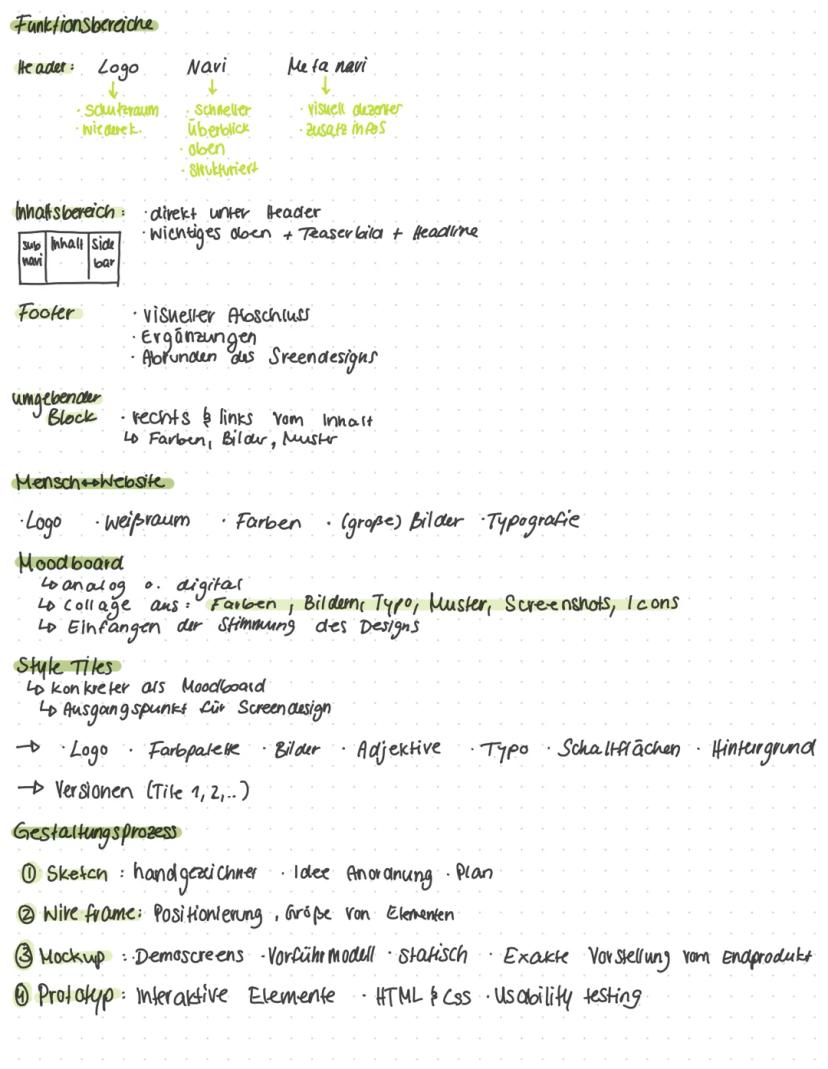 Funktionsbereiche
Header: Logo Navi Meta navi
· Schutzraum · schneller · visuell dezenter
· wiederek. Überblick · zusatz infos
· oben
· strukturiert
Inhaltsbereich: · direkt unter Header
· Wichtiges oben + Teaserbild + Headline
sub navi Inhalt Side bar
Footer · visueller Abschluss
· Ergänzungen
· Abrunden des Sreendesigns
umgebender
Block · rechts & links vom Inhalt
↳ Farben, Bilder, Muster
Mensch↔Website
· Logo · Weißraum · Farben · (große) Bilder · Typografie
Moodboard
↳ analog o. digital
↳ Collage aus: Farben, Bildern, Typo, Muster, Screenshots, Icons
↳ Einfangen der Stimmung des Designs
Style Tiles
↳ konkreter als Moodboard
↳ Ausgangspunkt für Screendesign
→ · Logo · Farbpalette · Bilder · Adjektive · Typo · Schaltflächen · Hintergrund
→ Versionen (Tile 1, 2,..)
Gestaltungsprozess
① Sketch: handgezeichnet · Idee Anordnung · Plan
② Wire frame: Positionierung, Größe von Elementen
③ Mockup: · Demoscreens · Vorführmodell · statisch · Exakte Vorstellung vom Endprodukt
④ Prototyp: Interaktive Elemente · HTML & Css · Usability testing